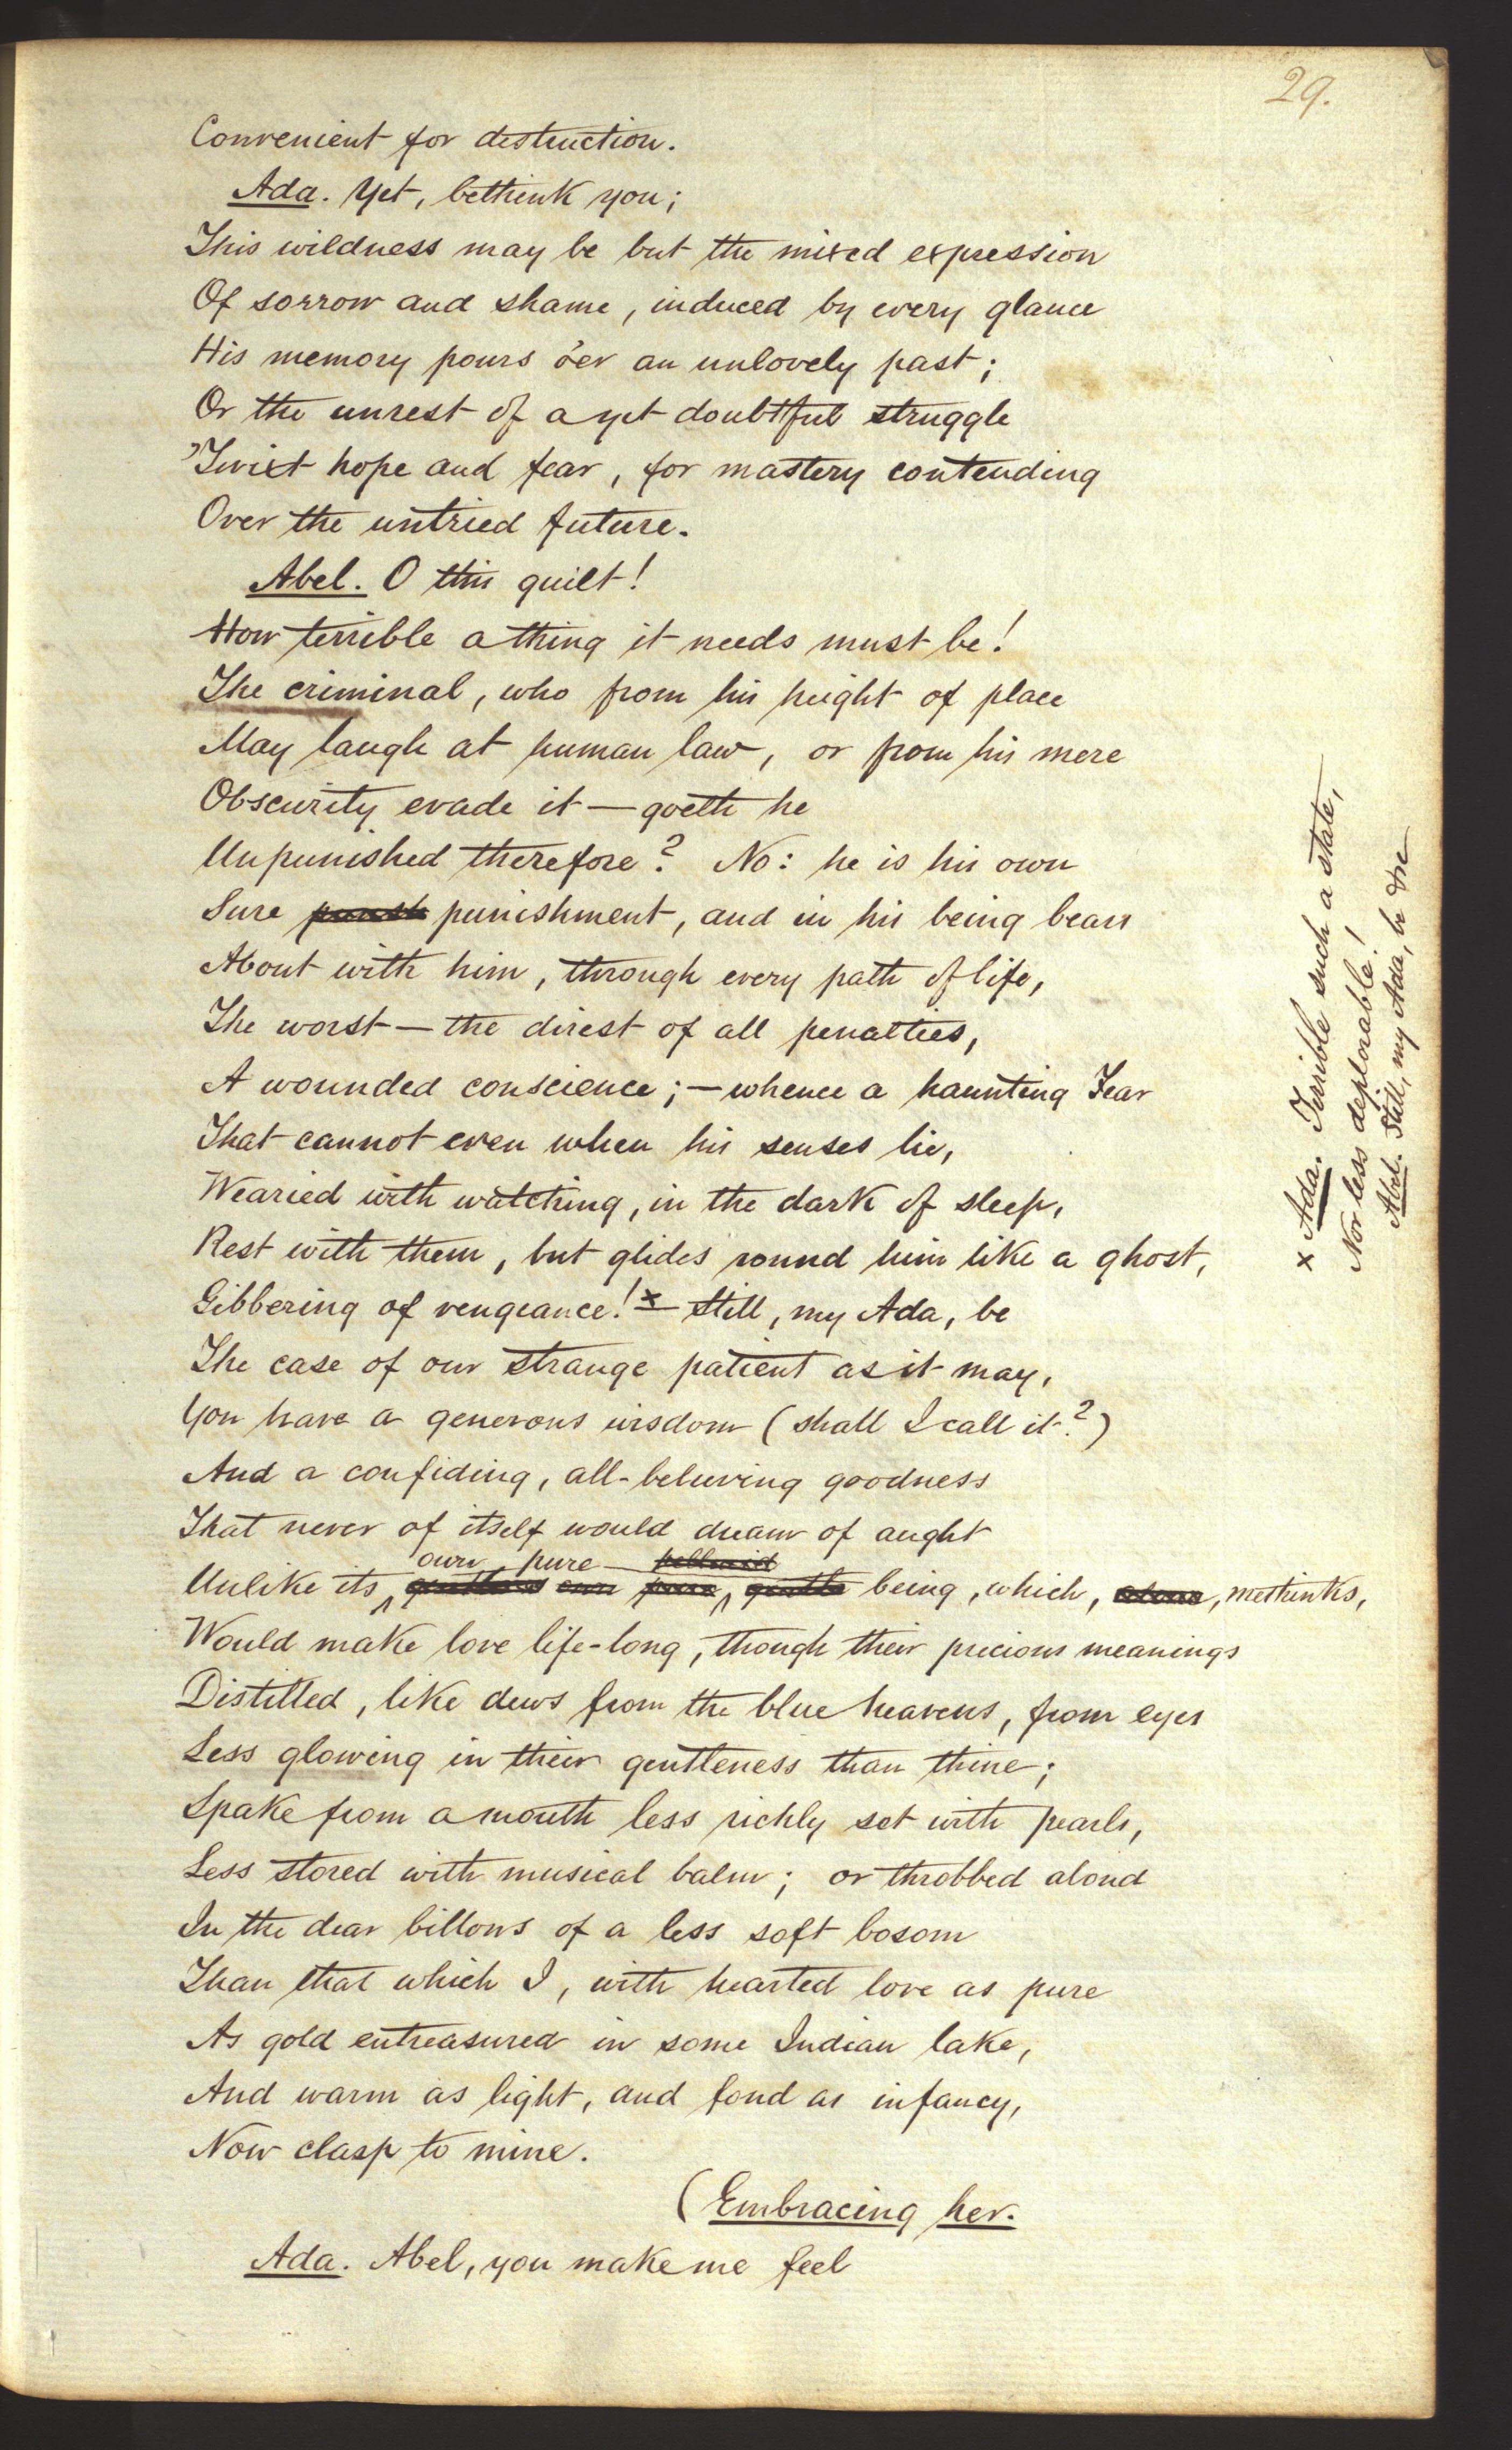 29.
Convenient for destruction.
Ada. Yet, bethink you;
This wildness may be but the mixed expression
Of sorrow and shame, induced by every glance
His memory pours o'er an unlovely past;
Or the unrest of a yet doubtful struggle
'Twixt hope and fear, for mastery contending
Over the untried future.
Abel. O this guilt!
How terrible a thing it needs must be!
The criminal, who from his height of place
May laugh at human law, or from his mere
Obscurity evade it — goeth he
Unpunished therefore? No: he is his own
Sure punishment, and in his being bears
About with him, through every path of life,
The worst — the direst of all penalties,
A wounded conscience; — whence a haunting Fear
That cannot even when his senses lie,
Wearied with watching, in the dark of sleep,
Rest with them, but glides round him like a ghost,
Gibbering of vengeance! x — Still, my Ada, be
The case of our strange patient as it may,
You have a generous wisdom (shall I call it?)
And a confiding, all-believing goodness
That never of itself would dream of aught
own pure pellucid
Unlike its own pure, gentle being, which, methinks,
Would make love life-long, though their precious meanings
Distilled, like dews from the blue heavens, from eyes
Less glowing in their gentleness than thine;
Spake from a mouth less richly set with pearls,
Less stored with musical balm; or throbbed aloud
In the dear billows of a less soft bosom
Than that which I, with hearted love as pure
As gold entreasured in some Indian lake,
And warm as light, and fond as infancy,
Now clasp to mine.
(Embracing her.
Ada. Abel, you make me feel
x Ada. Terrible such a state,
Nor less deplorable!
Abel. Still, my Ada, be &c